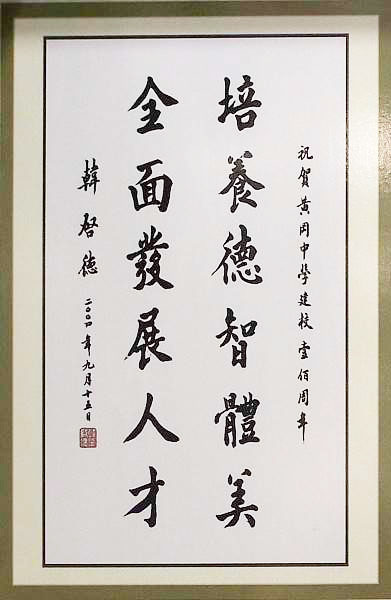 祝賀黄冈中學建校壹佰周年
培養德智體美
全面發展人才
韓啓德
二〇〇四年九月十五日